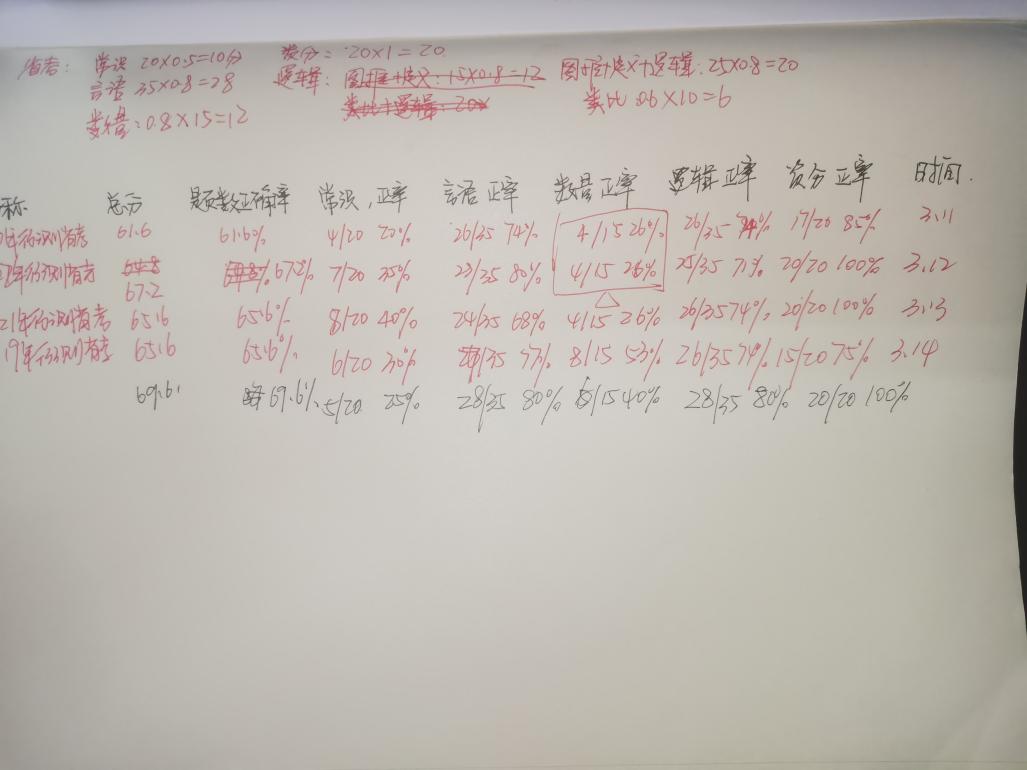 省考: 常识 20×0.5=10分 资分: 20×1=20
言语 35×0.8=28 逻辑: 图推+定义:15×0.8=12 图推+定义+逻辑:25×0.8=20
数量:0.8×15=12 类比+逻辑:20× 类比 0.6×10=6
称 总分 题数正确率 常识,正率 言语 正率 数量 正率 逻辑 正率 资分 正率 时间.
年 省考 61.6 61.6% 4/20 20% 26/35 74% 4/15 26% 26/35 74% 17/20 85% 3.11
年 省考 64.8 67.2% 7/20 35% 23/35 80% 4/15 26% 25/35 71% 20/20 100% 3.12
67.2
21年 省考 65.6 65.6% 8/20 40% 24/35 68% 4/15 26% 26/35 74% 20/20 100% 3.13
19年 省考 65.6 65.6% 6/20 30% /35 77% 8/15 53% 26/35 74% 15/20 75% 3.14
69.6 69.6% 5/20 25% 28/35 80% 6/15 40% 28/35 80% 20/20 100%